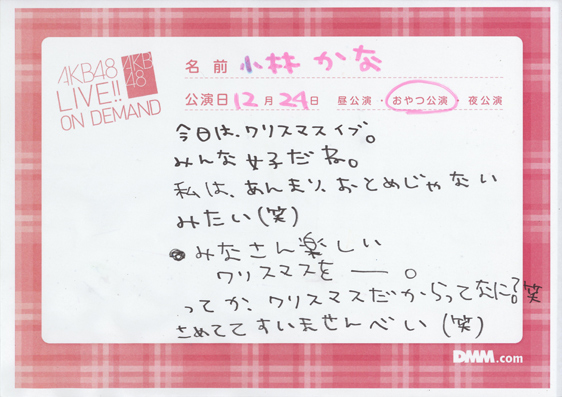 AKB48
LIVE!!
ON DEMAND
AKB
48
名前 小林かな
公演日 12月24日 昼公演・おやつ公演・夜公演
今日は、クリスマスイブ。
みんな女子だね。
私は、あんまり、おとめじゃない
みたい(笑)
みなさん楽しい
クリスマスを ー。
ってか、クリスマスだからってなに?笑
さめててすいませんべい(笑)
DMM.com